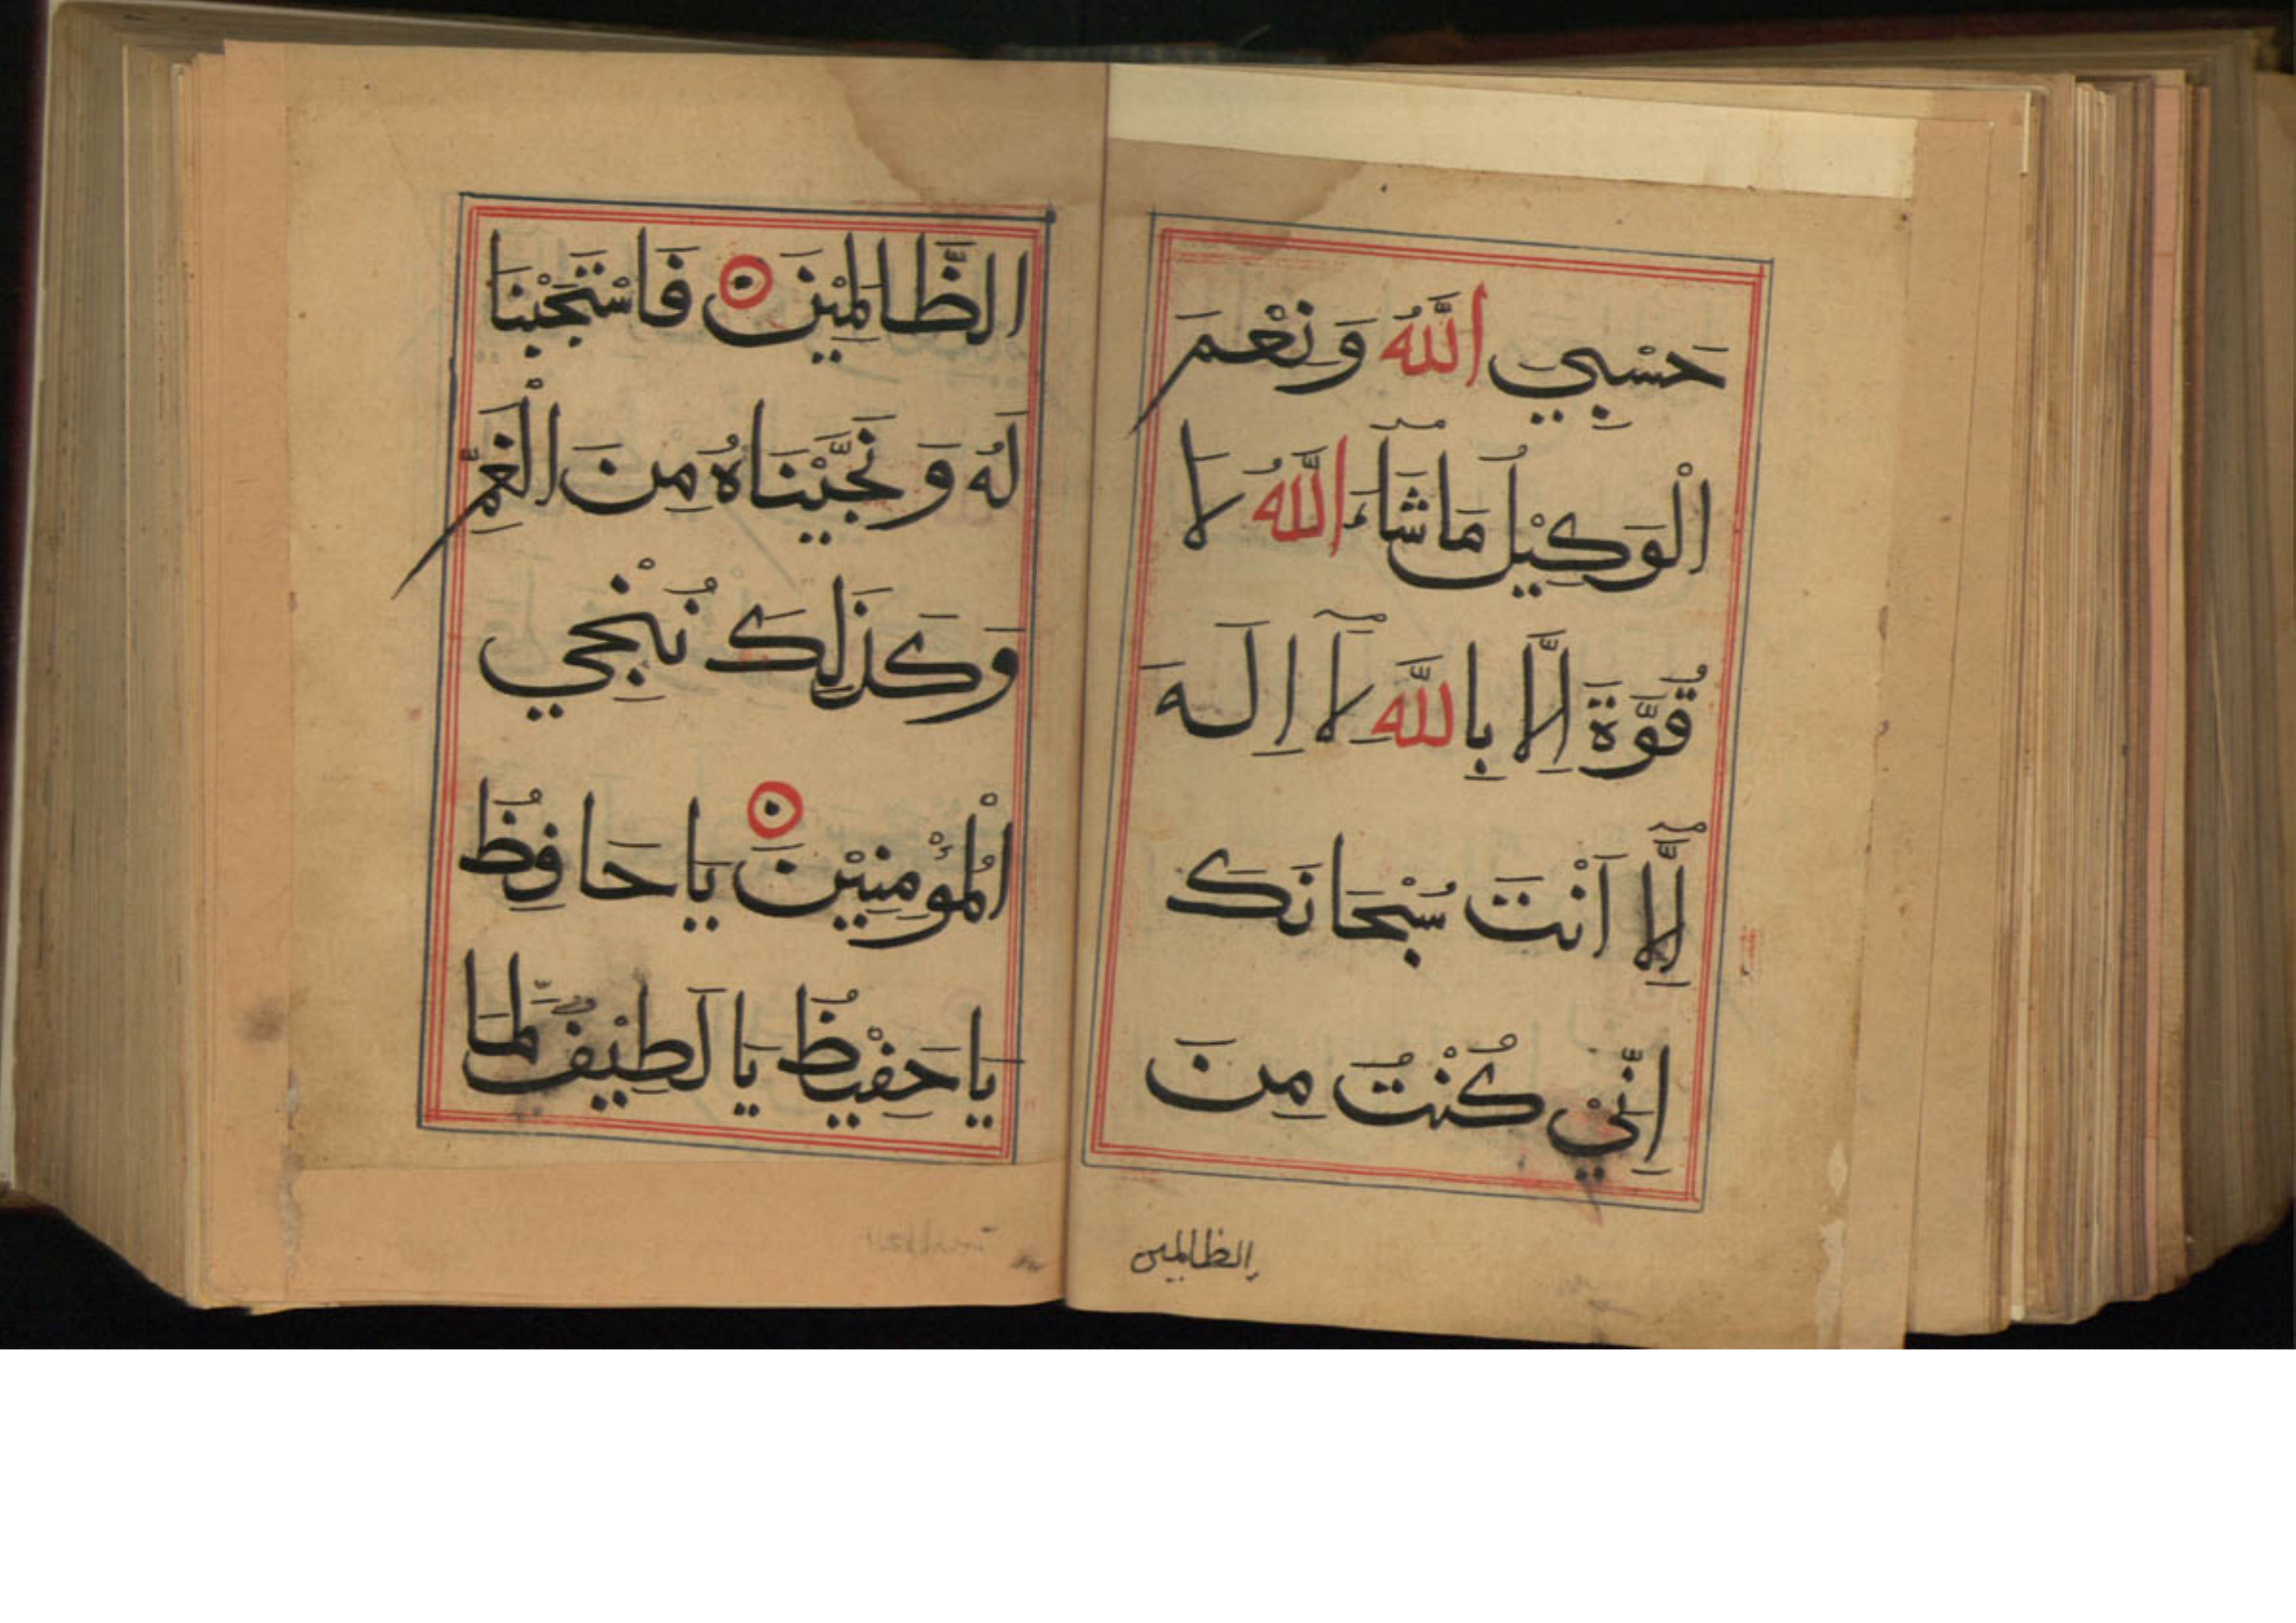 حَسْبِي اللَّهُ وَ نِعْمَ
الْوَكِيْلُ مَا شَآءَ اللَّهُ لَا
قُوَّةَ اِلَّا بِاللَّهِ لَآ اِلَهَ
اِلَّآ اَنْتَ سُبْحَانَكَ
اِنِّيْ كُنْتُ مِنَ
الظالمين
الظَّالِمِيْنَ فَاسْتَجَبْنَا
لَهُ وَ نَجَّيْنَاهُ مِنَ الْغَمِّ
وَكَذَلِكَ نُنْجِي
الْمُؤْمِنِيْنَ يَا حَافِظُ
يَا حَفِيْظُ يَا لَطِيْفُ